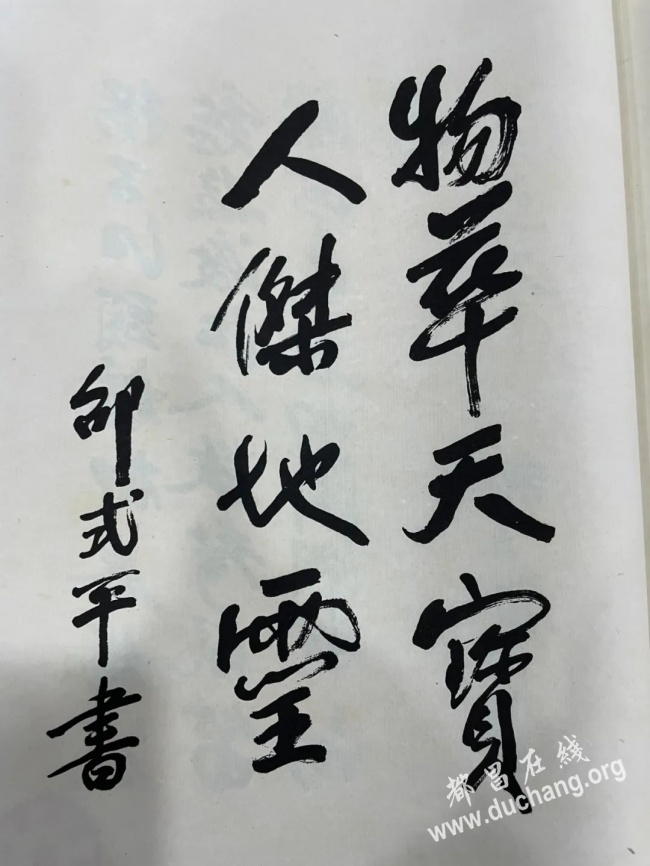 物華天寶
人傑地靈
邵式平書
都昌在线
www.duchang.org